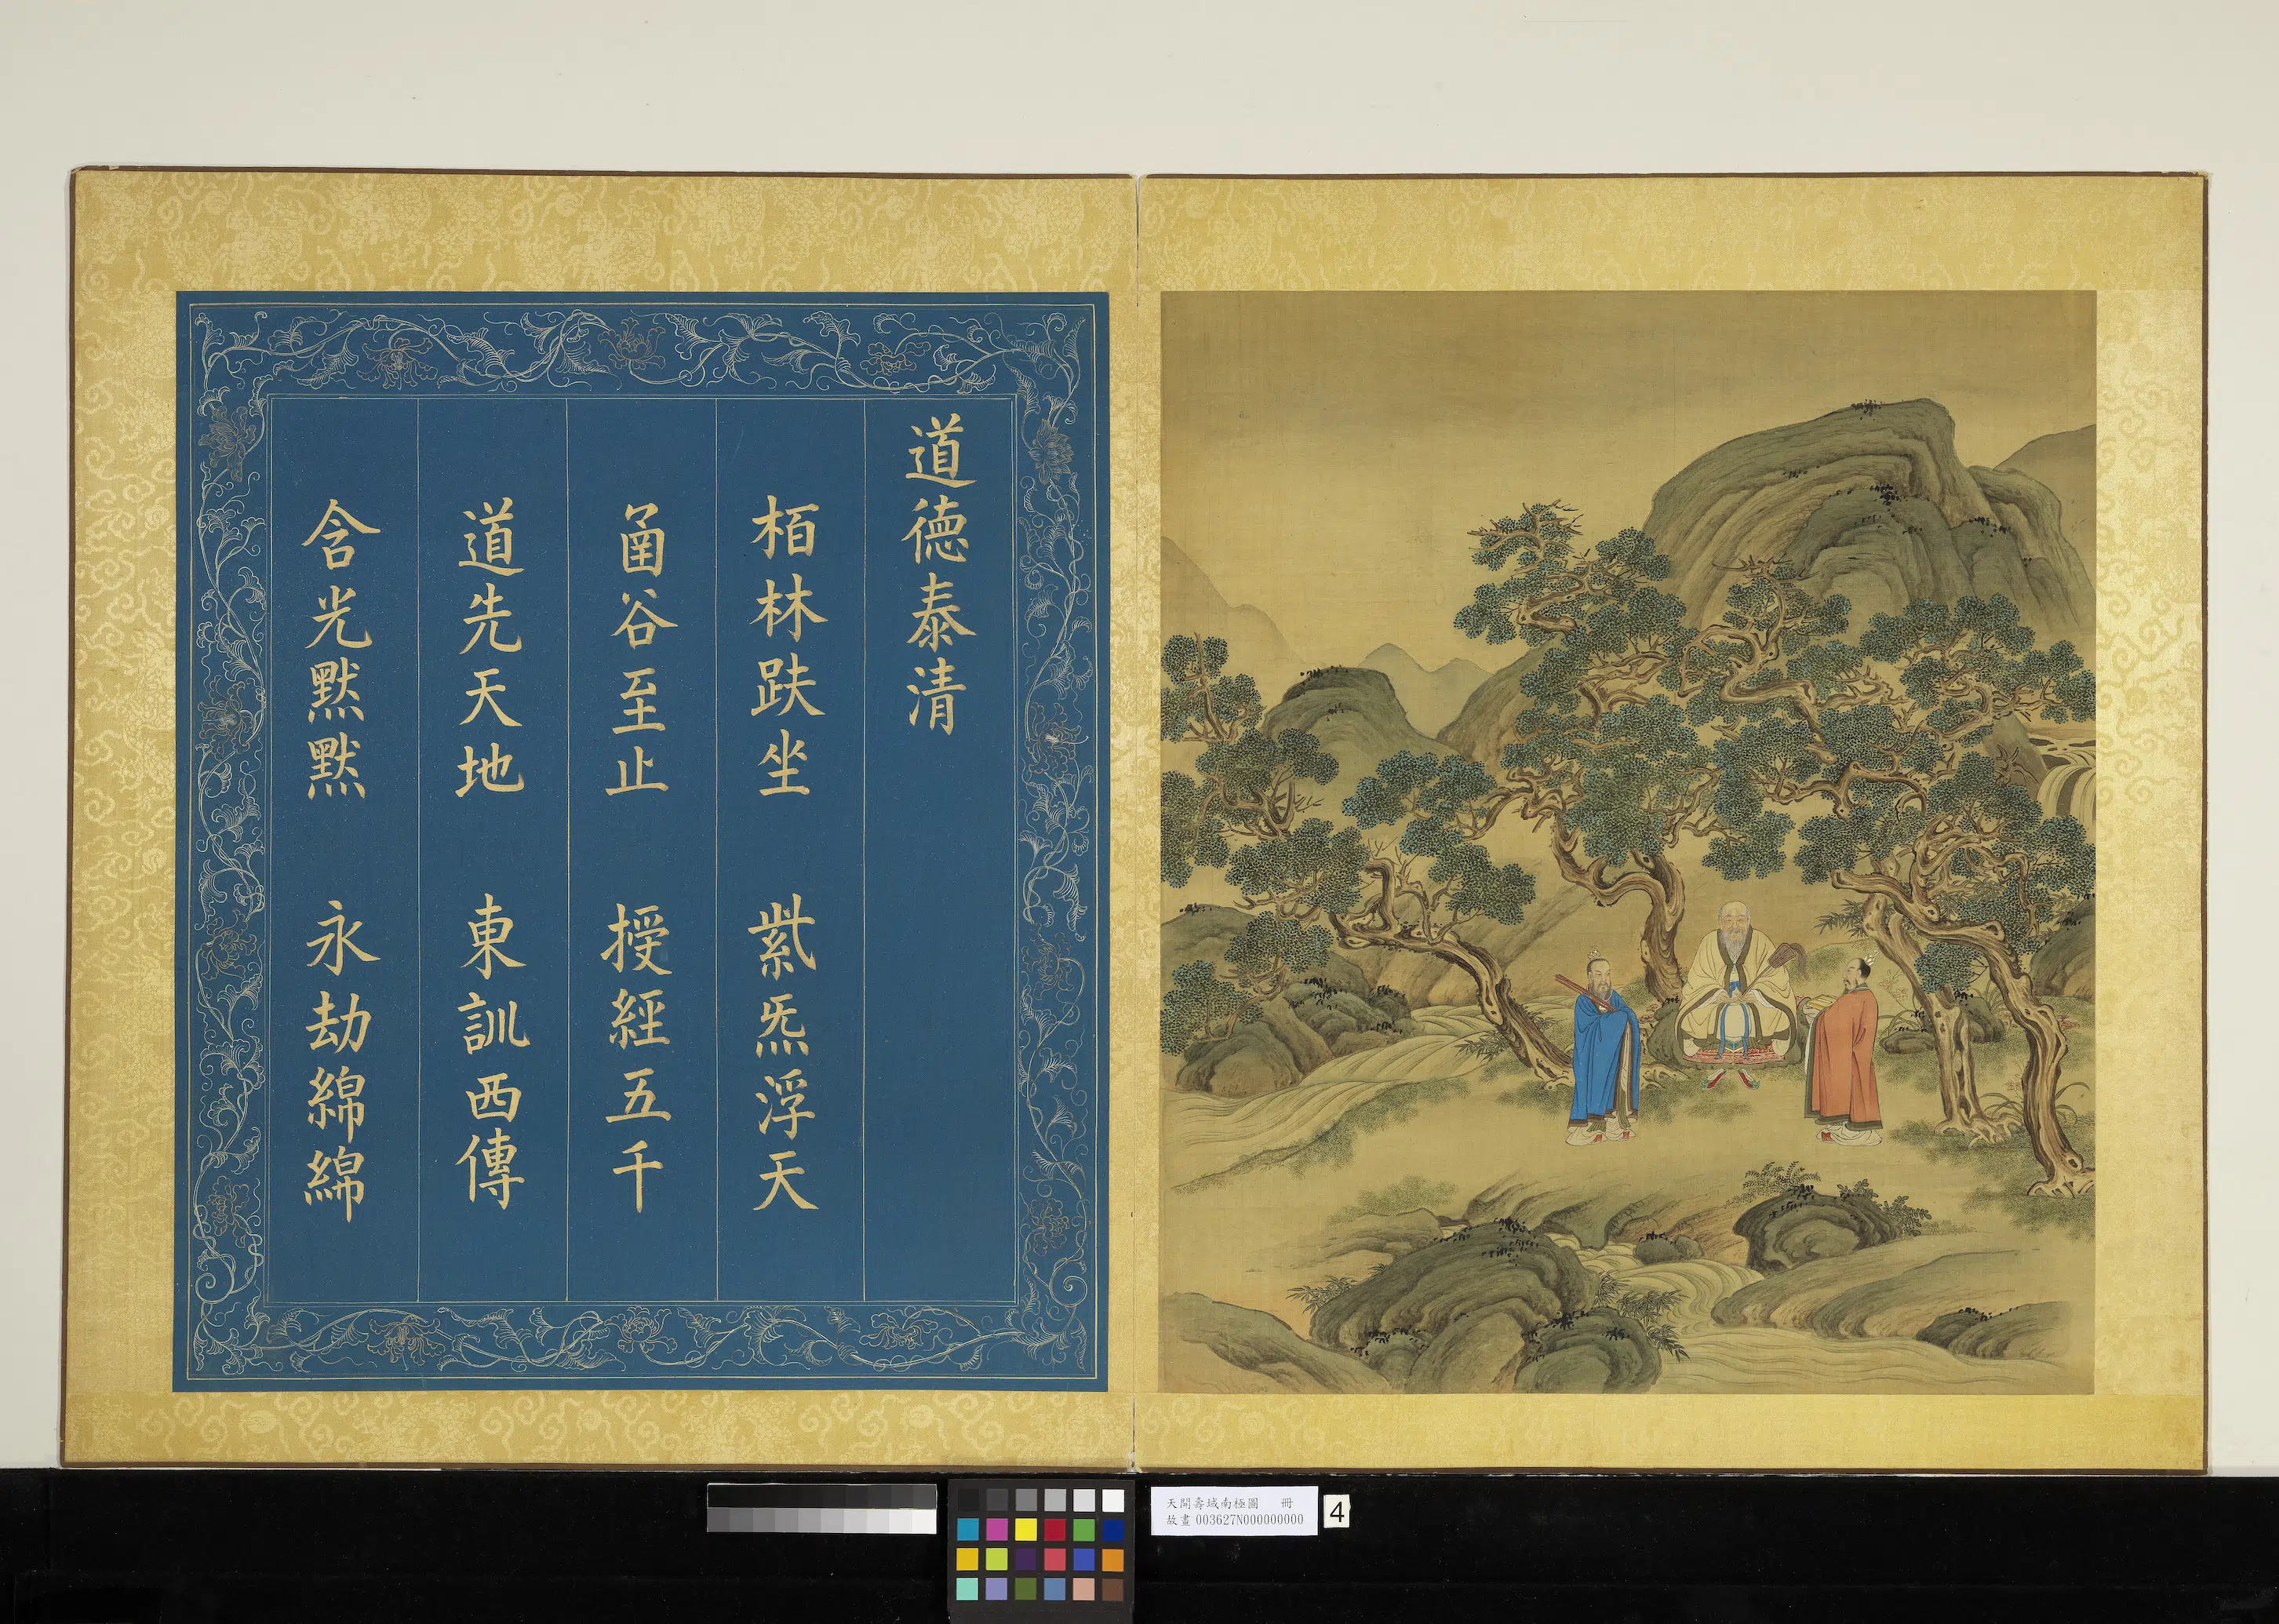 道德泰清
栢林趺坐　紫炁浮天
圅谷至止　授經五千
道先天地　東訓西傳
含光默默　永劫綿綿
天開壽域南極圖　冊
故畫 003627N000000000
4